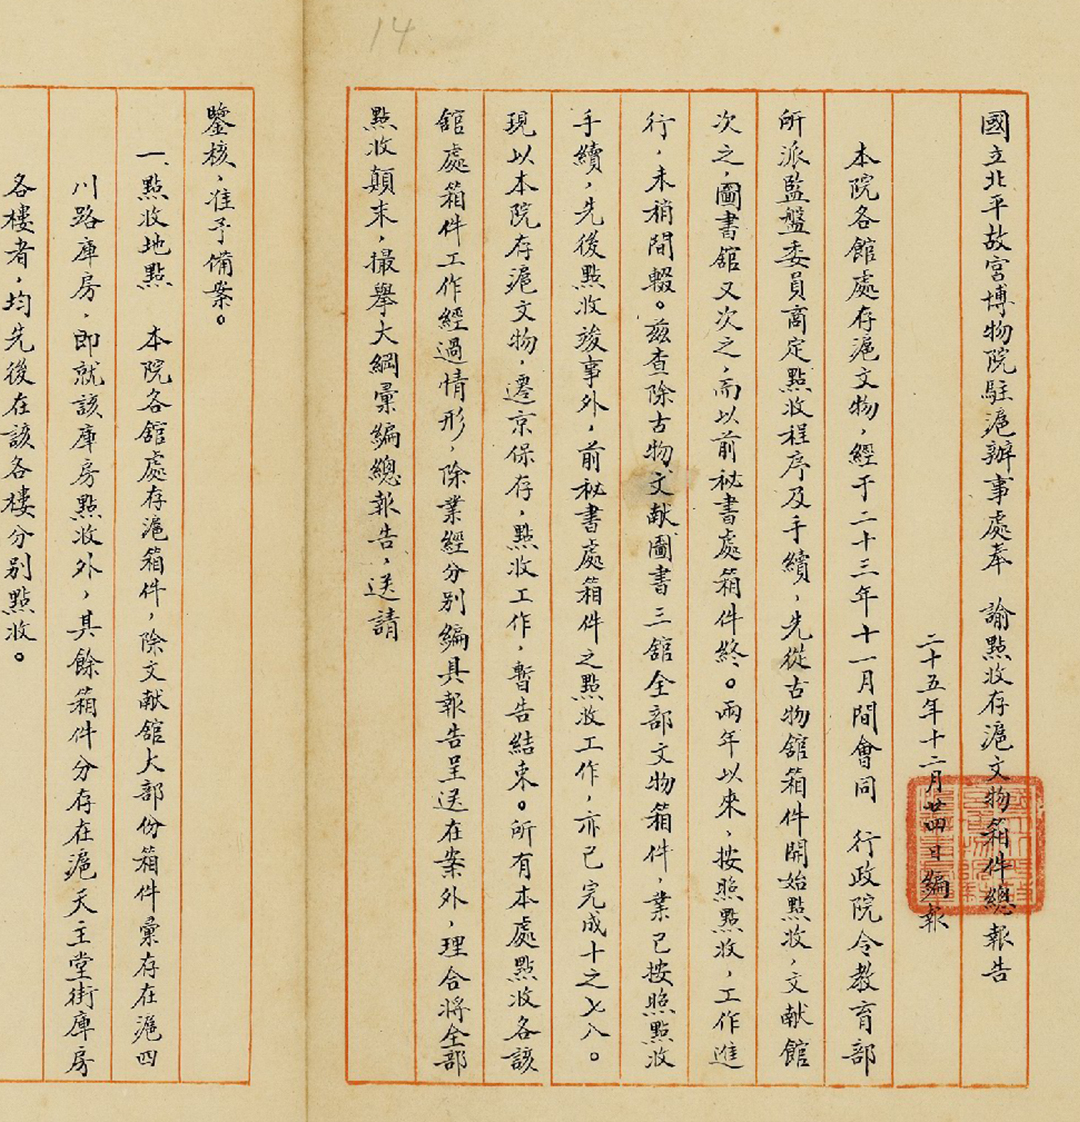 14
國立北平故宮博物院駐滬辦事處奉　諭點收存滬文物箱件總報告
二十五年十二月廿四日編報
本院各館處存滬文物，經于二十三年十一月間會同　行政院令教育部
所派監盤委員商定點收程序及手續，先從古物館箱件開始點收，文献館
次之，圖書館又次之，而以前祕書處箱件終。兩年以來，按照點收，工作進
行，未稍間輟。茲查除古物文献圖書三館全部文物箱件，業已按照點收
手續，先後點收竣事外，前祕書處箱件之點收工作，亦已完成十之七八。
現以本院存滬文物，遷京保存，點收工作，暫告結束。所有本處點收各該
館處箱件工作經過情形，除業經分别編具報告呈送在案外，理合將全部
點收顛末，撮舉大綱彙編總報告，送請
鑒核，准予備案。
一、點收地點　本院各館處存滬箱件，除文献館大部份箱件彙存在滬四
川路庫房，即就該庫房點收外，其餘箱件分存在滬天主堂街庫房
各樓者，均先後在該各樓分别點收。